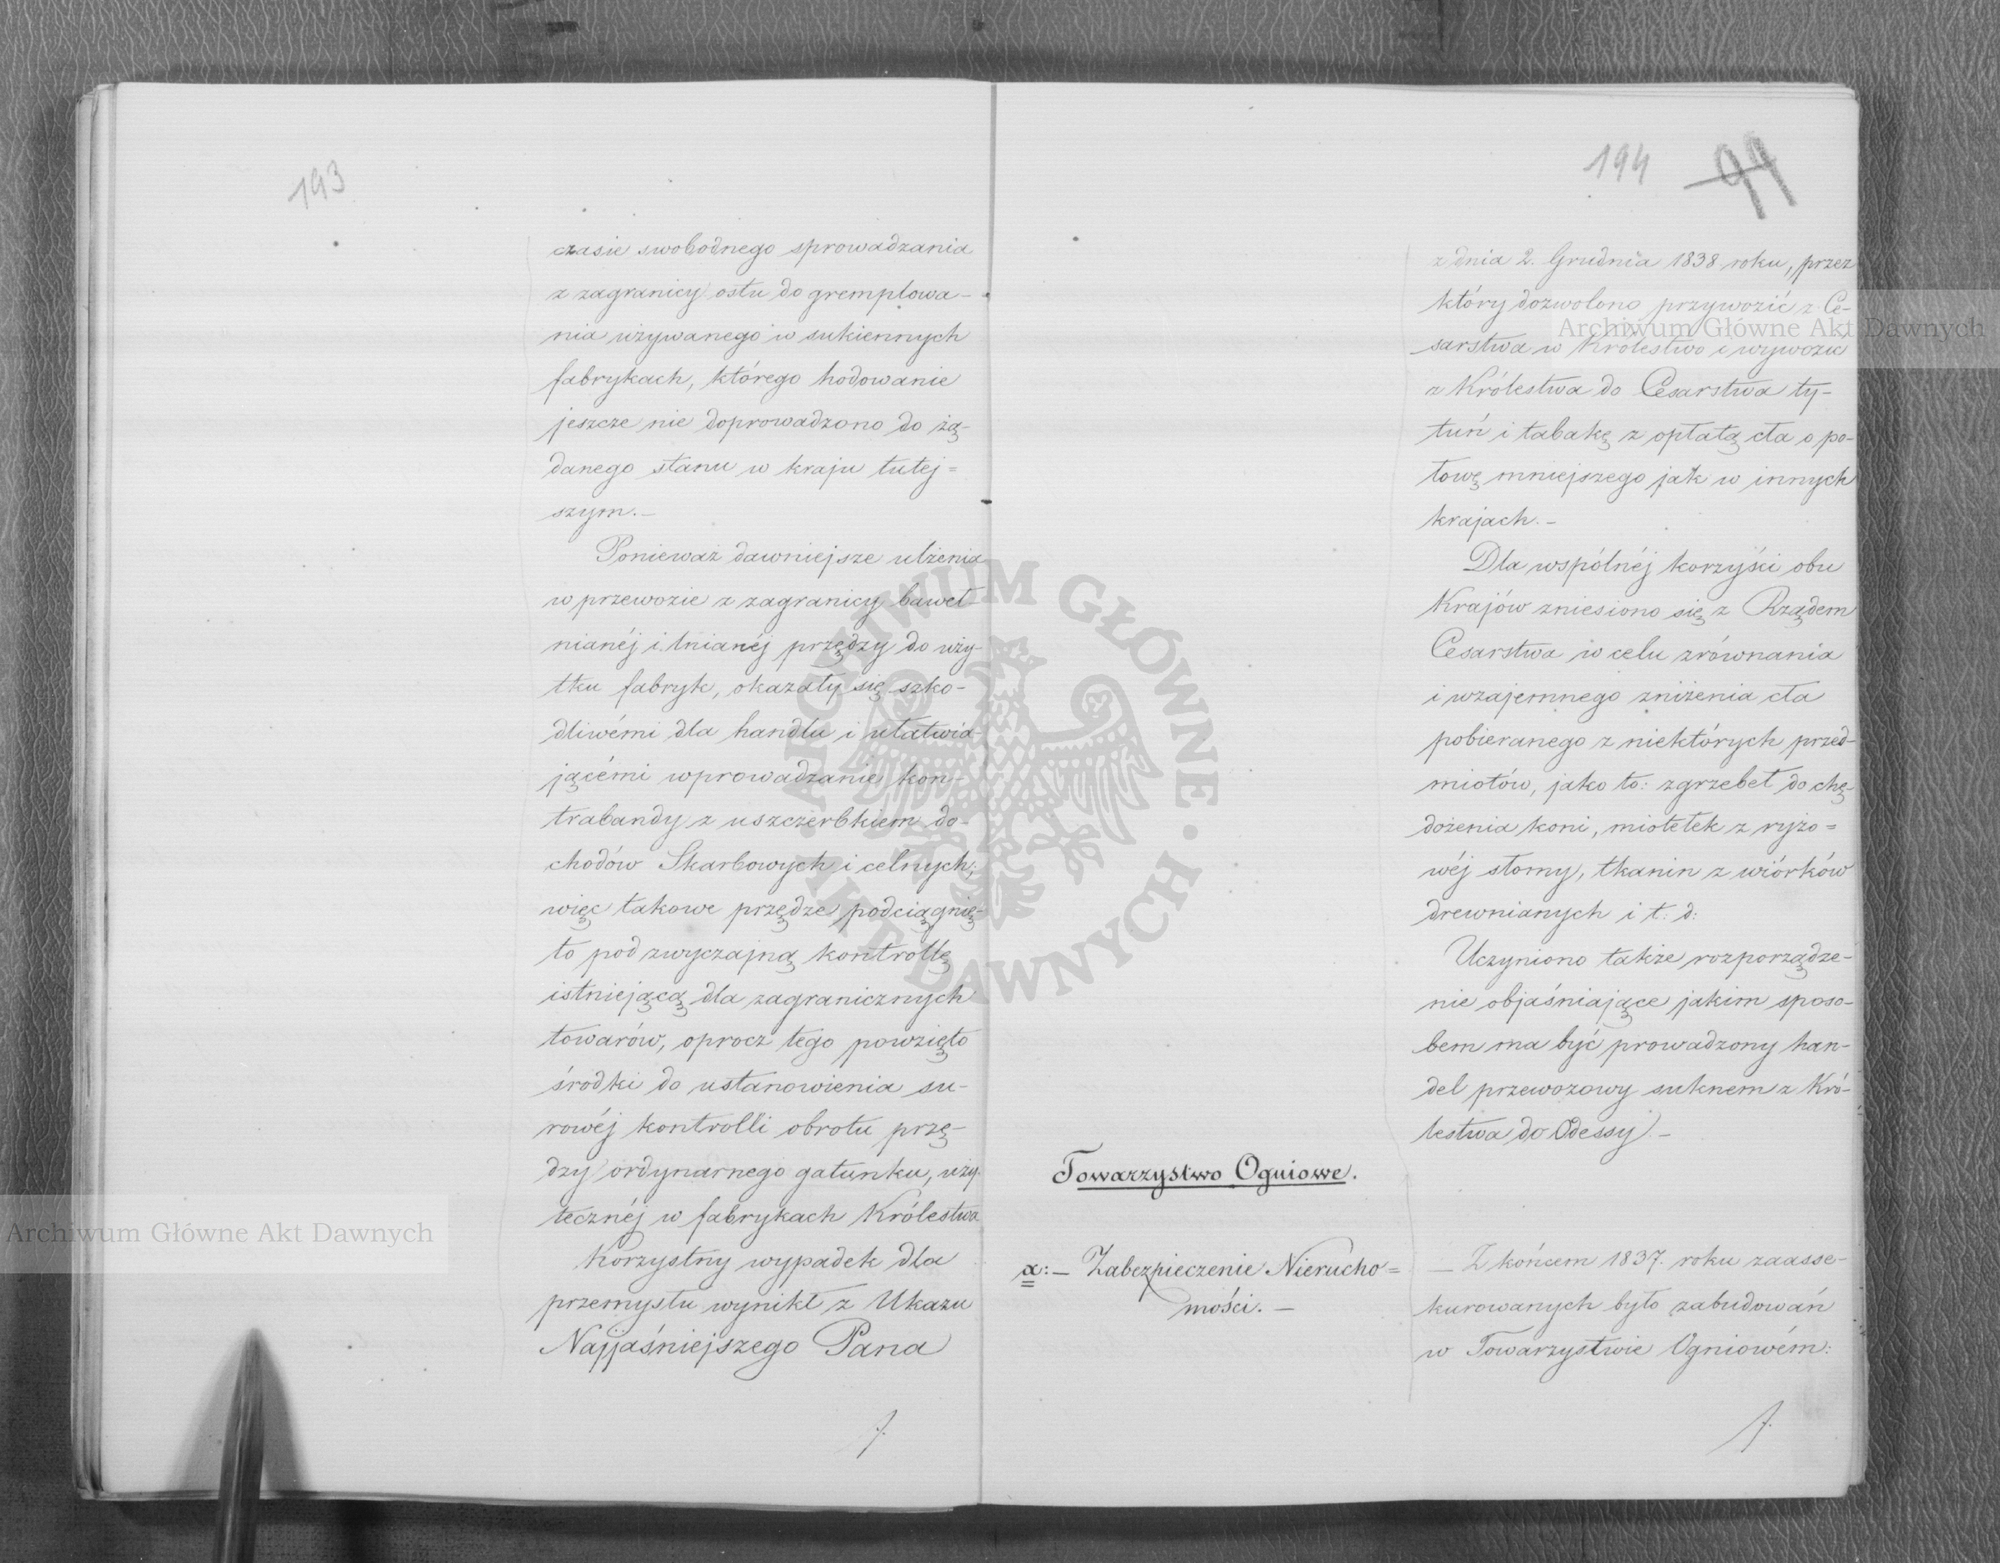 193
czasie swobodnego sprowadzania
z zagranicy ostu do gremplowa-
nia używanego w sukiennych
fabrykach, którego hodowanie
jeszcze nie doprowadzono do żą-
danego stanu w kraju tutej=
szym.-
Ponieważ dawniejsze ulżenia
w przewozie z zagranicy baweł-
nianéj i lnianéj przędzy do uży-
tku fabryk, okazały się szko-
dliwémi dla handlu i ułatwia-
jącémi wprowadzanie kon-
trabandy z uszczerbkiem do-
chodów Skarbowych i celnych;
więc takowe przędze podciągnię-
to pod zwyczajną kontrollę
istniejącą dla zagranicznych
towarów, oprocz tego powzięto
środki do ustanowienia su-
rowéj kontrolli obrotu przę-
dzy ordynarnego gatunku, uży-
tecznéj w fabrykach Królestwa
Korzystny wypadek dla
przemysłu wynikł z Ukazu
Najjaśniejszego Pana
194 99
z dnia 2. Grudnia 1838 roku, przez
który dozwolono przywozić z Ce-
sarstwa w Królestwo i wywozić
z Królestwa do Cesarstwa ty-
tuń i tabakę z opłatą cła o po-
łowę mniejszego jak w innych
krajach.-
Dla wspólnéj korzyści obu
Krajów zniesiono się z Rządem
Cesarstwa w celu zrównania
i wzajemnego zniżenia cła
pobieranego z niektórych przed-
miotów, jako to: zgrzebeł do chę-
dożenia koni, miotełek z ryżo=
wéj słomy, tkanin z wiórków
drewnianych i t: d:
Uczyniono także rozporządze-
nie objaśniające jakim sposo-
bem ma być prowadzony han-
del przewozowy suknem z Kró-
lestwa do Odessy.-
Towarzystwo Ogniowe.
a:- Zabezpieczenie Nierucho=
mości.-
- Z końcem 1837. roku zaasse-
kurowanych było zabudowań
w Towarzystwie Ogniowém:
Archiwum Główne Akt Dawnych
Archiwum Główne Akt Dawnych
ARCHIWUM GŁÓWNE AKT DAWNYCH